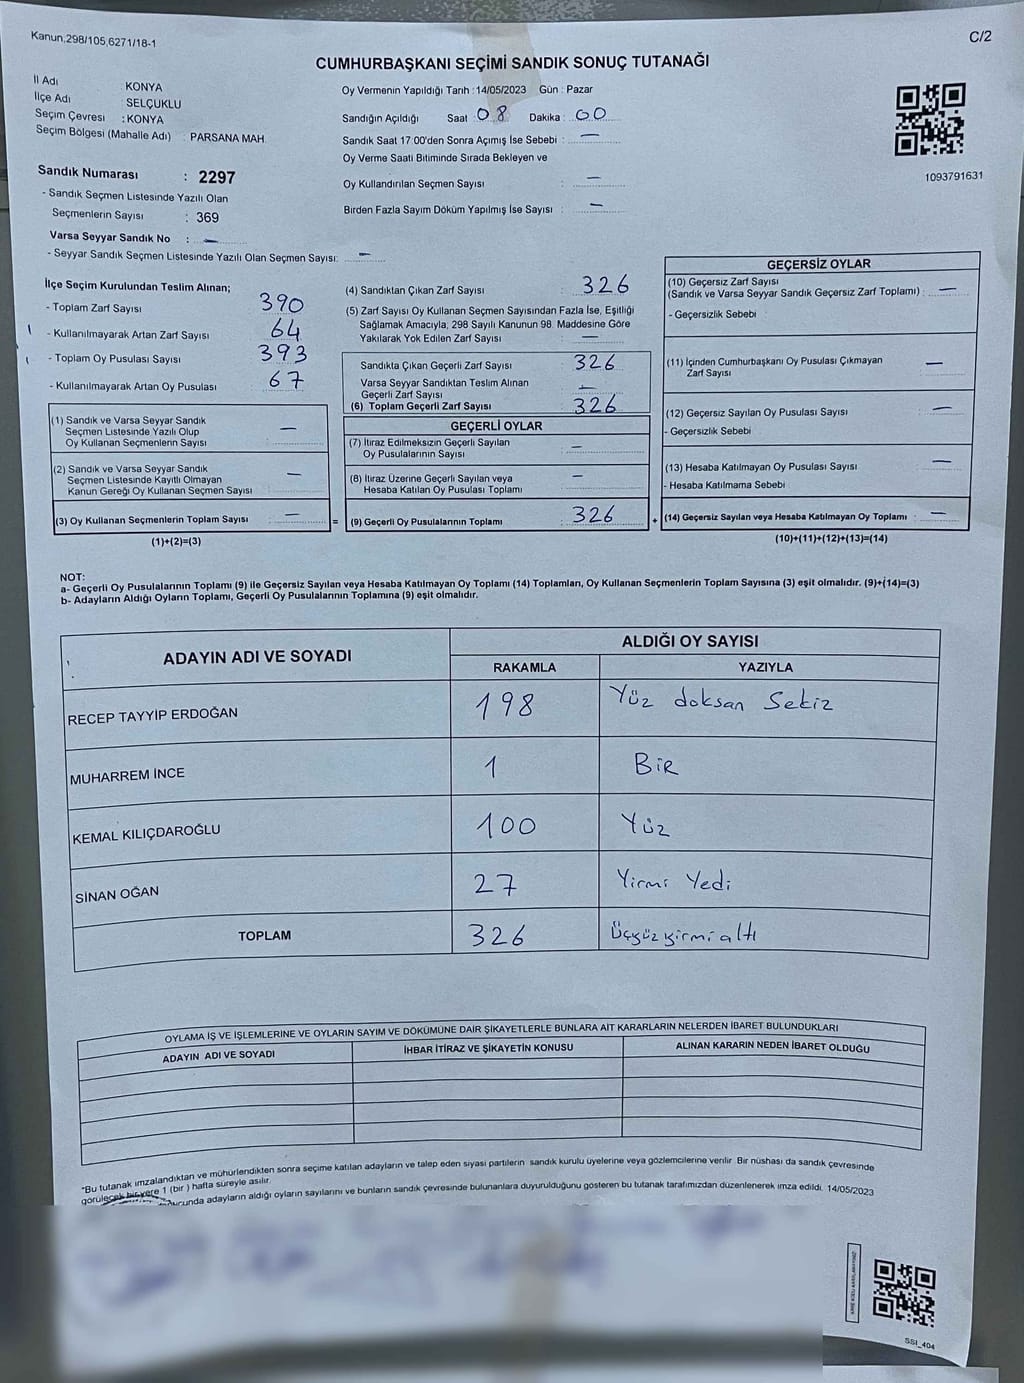 Kanun;298/105,6271/18-1
C/2
CUMHURBAŞKANI SEÇİMİ SANDIK SONUÇ TUTANAĞI
İl Adı : KONYA
İlçe Adı : SELÇUKLU
Seçim Çevresi : KONYA
Seçim Bölgesi (Mahalle Adı) : PARSANA MAH.
Sandık Numarası : 2297
- Sandık Seçmen Listesinde Yazılı Olan
Seçmenlerin Sayısı : 369
Varsa Seyyar Sandık No : —
- Seyyar Sandık Seçmen Listesinde Yazılı Olan Seçmen Sayısı: —
Oy Vermenin Yapıldığı Tarih : 14/05/2023 Gün : Pazar
Sandığın Açıldığı Saat : 08 Dakika : 00
Sandık Saat 17:00'den Sonra Açımış İse Sebebi : —
Oy Verme Saati Bitiminde Sırada Bekleyen ve
Oy Kullandırılan Seçmen Sayısı : —
Birden Fazla Sayım Döküm Yapılmış İse Sayısı : —
1093791631
İlçe Seçim Kurulundan Teslim Alınan;
- Toplam Zarf Sayısı : 390
- Kullanılmayarak Artan Zarf Sayısı : 64
- Toplam Oy Pusulası Sayısı : 393
- Kullanılmayarak Artan Oy Pusulası : 67
(1) Sandık ve Varsa Seyyar Sandık
Seçmen Listesinde Yazılı Olup
Oy Kullanan Seçmenlerin Sayısı : —
(2) Sandık ve Varsa Seyyar Sandık
Seçmen Listesinde Kayıtlı Olmayan
Kanun Gereği Oy Kullanan Seçmen Sayısı : —
(3) Oy Kullanan Seçmenlerin Toplam Sayısı : —
(1)+(2)=(3)
(4) Sandıktan Çıkan Zarf Sayısı : 326
(5) Zarf Sayısı Oy Kullanan Seçmen Sayısından Fazla İse, Eşitliği
Sağlamak Amacıyla, 298 Sayılı Kanunun 98. Maddesine Göre
Yakılarak Yok Edilen Zarf Sayısı : —
Sandıkta Çıkan Geçerli Zarf Sayısı : 326
Varsa Seyyar Sandıktan Teslim Alınan
Geçerli Zarf Sayısı : —
(6) Toplam Geçerli Zarf Sayısı : 326
GEÇERLİ OYLAR
(7) İtiraz Edilmeksizin Geçerli Sayılan
Oy Pusulalarının Sayısı : —
(8) İtiraz Üzerine Geçerli Sayılan veya
Hesaba Katılan Oy Pusulası Toplamı : —
= (9) Geçerli Oy Pusulalarının Toplamı : 326
GEÇERSİZ OYLAR
(10) Geçersiz Zarf Sayısı
(Sandık ve Varsa Seyyar Sandık Geçersiz Zarf Toplamı) : —
- Geçersizlik Sebebi :
(11) İçinden Cumhurbaşkanı Oy Pusulası Çıkmayan
Zarf Sayısı : —
(12) Geçersiz Sayılan Oy Pusulası Sayısı : —
- Geçersizlik Sebebi
(13) Hesaba Katılmayan Oy Pusulası Sayısı : —
- Hesaba Katılmama Sebebi
+ (14) Geçersiz Sayılan veya Hesaba Katılmayan Oy Toplamı : —
(10)+(11)+(12)+(13)=(14)
NOT:
a- Geçerli Oy Pusulalarının Toplamı (9) ile Geçersiz Sayılan veya Hesaba Katılmayan Oy Toplamı (14) Toplamları, Oy Kullanan Seçmenlerin Toplam Sayısına (3) eşit olmalıdır. (9)+(14)=(3)
b- Adayların Aldığı Oyların Toplamı, Geçerli Oy Pusulalarının Toplamına (9) eşit olmalıdır.
ADAYIN ADI VE SOYADI
ALDIĞI OY SAYISI
RAKAMLA YAZIYLA
RECEP TAYYİP ERDOĞAN 198 Yüz doksan Sekiz
MUHARREM İNCE 1 BİR
KEMAL KILIÇDAROĞLU 100 Yüz
SİNAN OĞAN 27 Yirmi Yedi
TOPLAM 326 Üçyüzyirmialtı
OYLAMA İŞ VE İŞLEMLERİNE VE OYLARIN SAYIM VE DÖKÜMÜNE DAİR ŞİKAYETLERLE BUNLARA AİT KARARLARIN NELERDEN İBARET BULUNDUKLARI
ADAYIN ADI VE SOYADI İHBAR İTİRAZ VE ŞİKAYETİN KONUSU ALINAN KARARIN NEDEN İBARET OLDUĞU
"Bu tutanak imzalandıktan ve mühürlendikten sonra seçime katılan adayların ve talep eden siyasi partilerin sandık kurulu üyelerine veya gözlemcilerine verilir. Bir nüshası da sandık çevresinde
görülecek bir yere 1 (bir) hafta süreyle asılır.
adayların aldığı oyların sayılarını ve bunların sandık çevresinde bulunanlara duyurulduğunu gösteren bu tutanak tarafımızdan düzenlenerek imza edildi. 14/05/2023
SSI_404